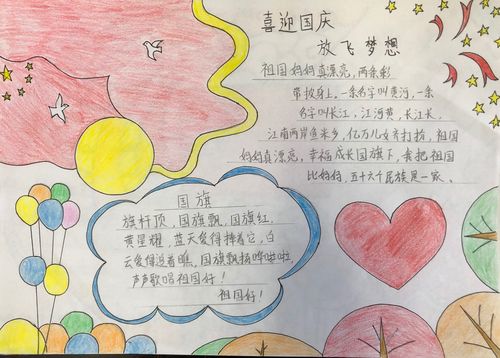 喜迎国庆
放飞梦想
祖国妈妈真漂亮,两条彩
带披身上,一条名字叫黄河,一条
名字叫长江,江河黄,长江长,
江南两岸鱼米乡,亿万儿女齐打扮,祖国
妈妈真漂亮,幸福成长国旗下,我把祖国
比妈妈,五十六个民族是一家。
国旗
旗杆顶,国旗飘,国旗红,
黄星耀,蓝天爱得捧着它,白
云爱得追着瞧,国旗飘扬哗啦啦
声声歌唱祖国好!
祖国好!